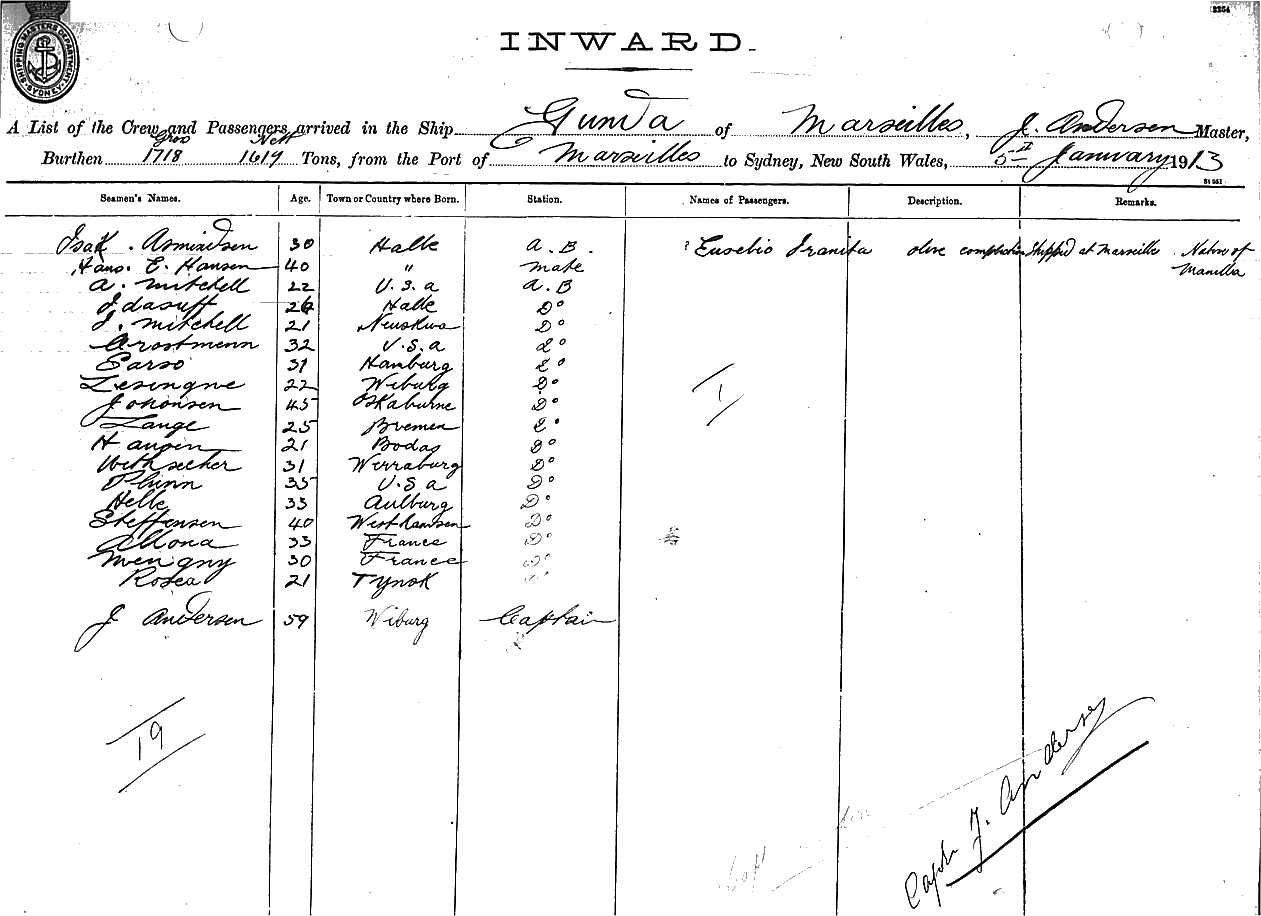 3354
SHIPPING MASTERS DEPARTMENT SYDNEY
INWARD.
A List of the Crew and Passengers arrived in the Ship Gunda of Marseilles, J. Andersen Master,
Gros Nett
Burthen 1718 1619 Tons, from the Port of Marseilles to Sydney, New South Wales, 5 January 1913
Seamen's Names. Age. Town or Country where Born. Station. Names of Passengers. Description. Remarks.
Isak Asmindsen 30 Halle A.B. ? Eusebio Franita olive complection Shipped at Marseille Native of
Hans. E. Hansen 40 " mate Manilla
A. Mitchell 22 U.S.a A.B
J dasuff 26 Halle Do
J. Mitchell 21 Do
Arostmenn 32 U.S.a Do
Carso 31 Hamburg Do
Lesingne 22 Wiburg Do
Johonsen 45 Do
Lange 25 Bremen Do
Hansen 21 Bodas Do
31 Werraburg Do
Plunn 35 U.S a Do
Helle 33 Aulburg Do
Steffensen 40 Do
Allona 33 France Do
30 France Do
Rosea 21 Tynsk
J Andersen 59 Wiburg Captain
1
19
Capt. J. Andersen